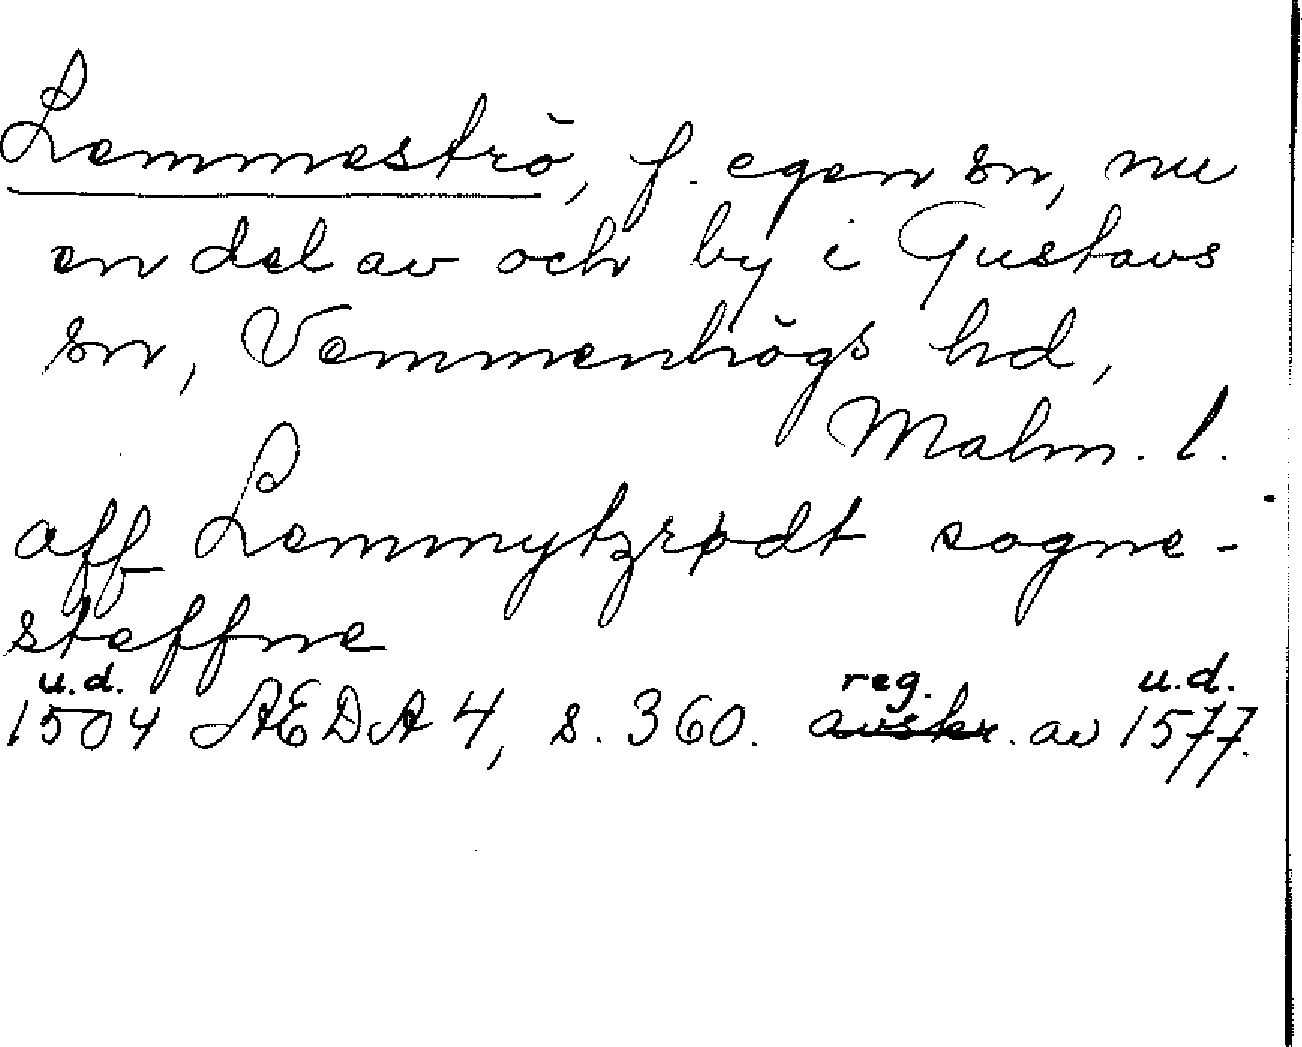 Lemmeströ, f. egen sn, nu
en del av och by i Gustavs
sn, Vemmenhögs hd,
Malm. l.
aff Lemmytzrødt sogne-
steffne
u.d. reg. u.d.
1504 AEDA 4, s. 360. avskr. av 1577.